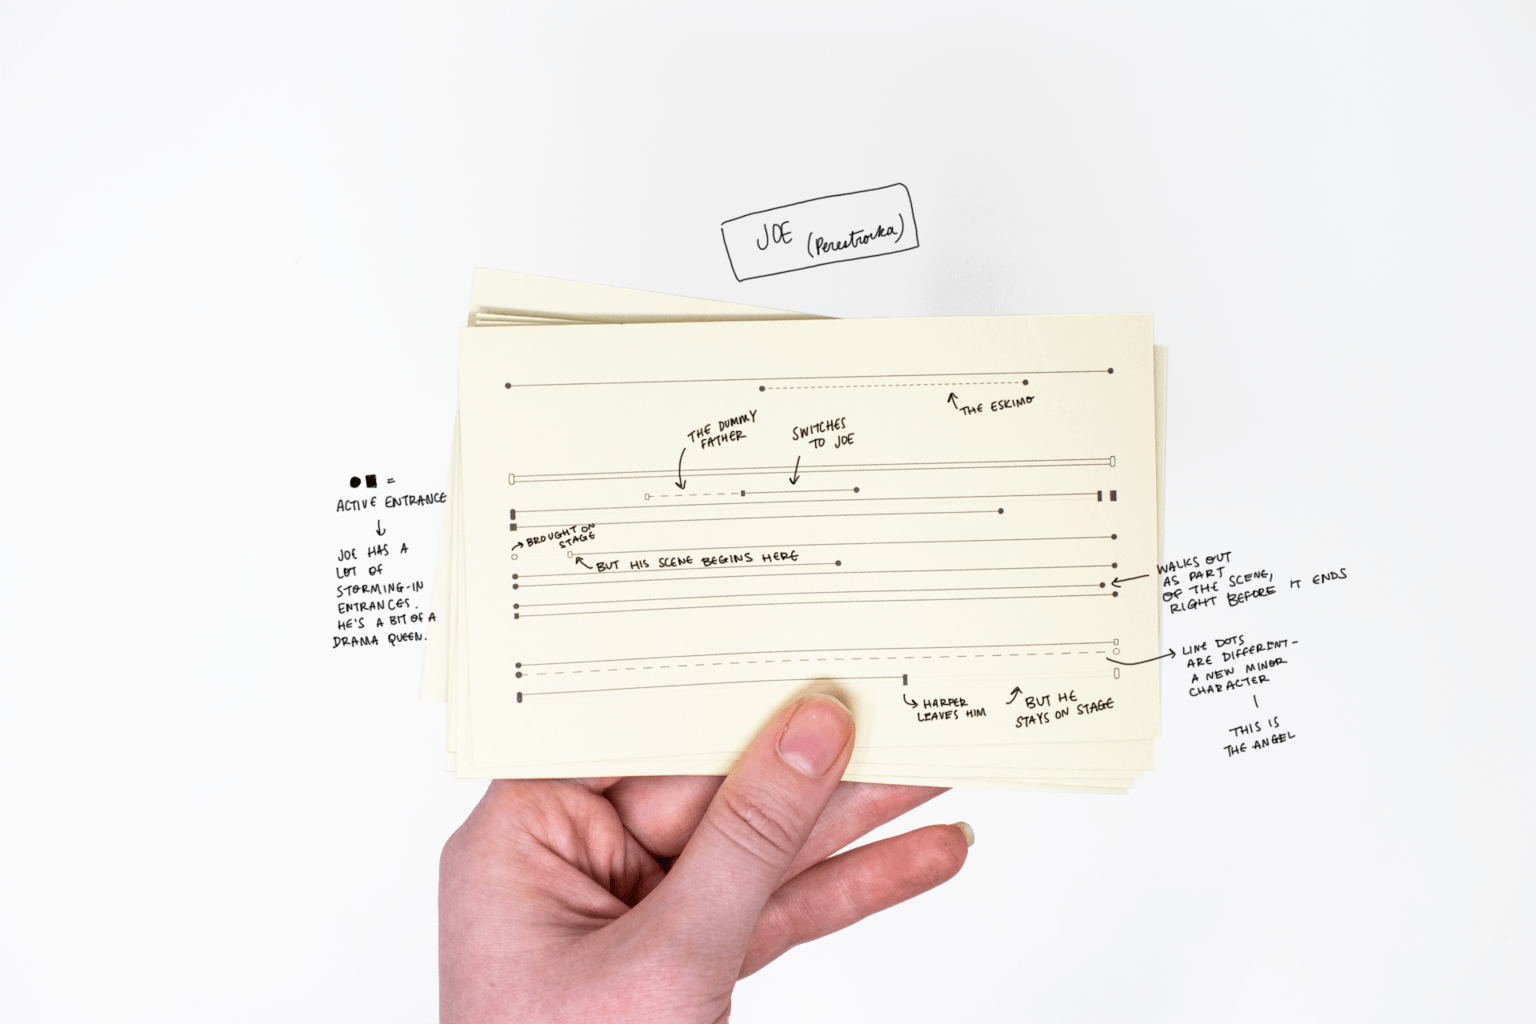 JOE (Perestroika)
THE ESKIMO
THE DUMMY
FATHER
SWITCHES
TO JOE
=
ACTIVE ENTRANCE
JOE HAS A
LOT OF
STORMING-IN
ENTRANCES.
HE'S A BIT OF A
DRAMA QUEEN.
BROUGHT ON
STAGE
BUT HIS SCENE BEGINS HERE
WALKS OUT
AS PART
OF THE SCENE,
RIGHT BEFORE IT ENDS
LINE DOTS
ARE DIFFERENT-
A NEW MINOR
CHARACTER
THIS IS
THE ANGEL
HARPER
LEAVES HIM
BUT HE
STAYS ON STAGE